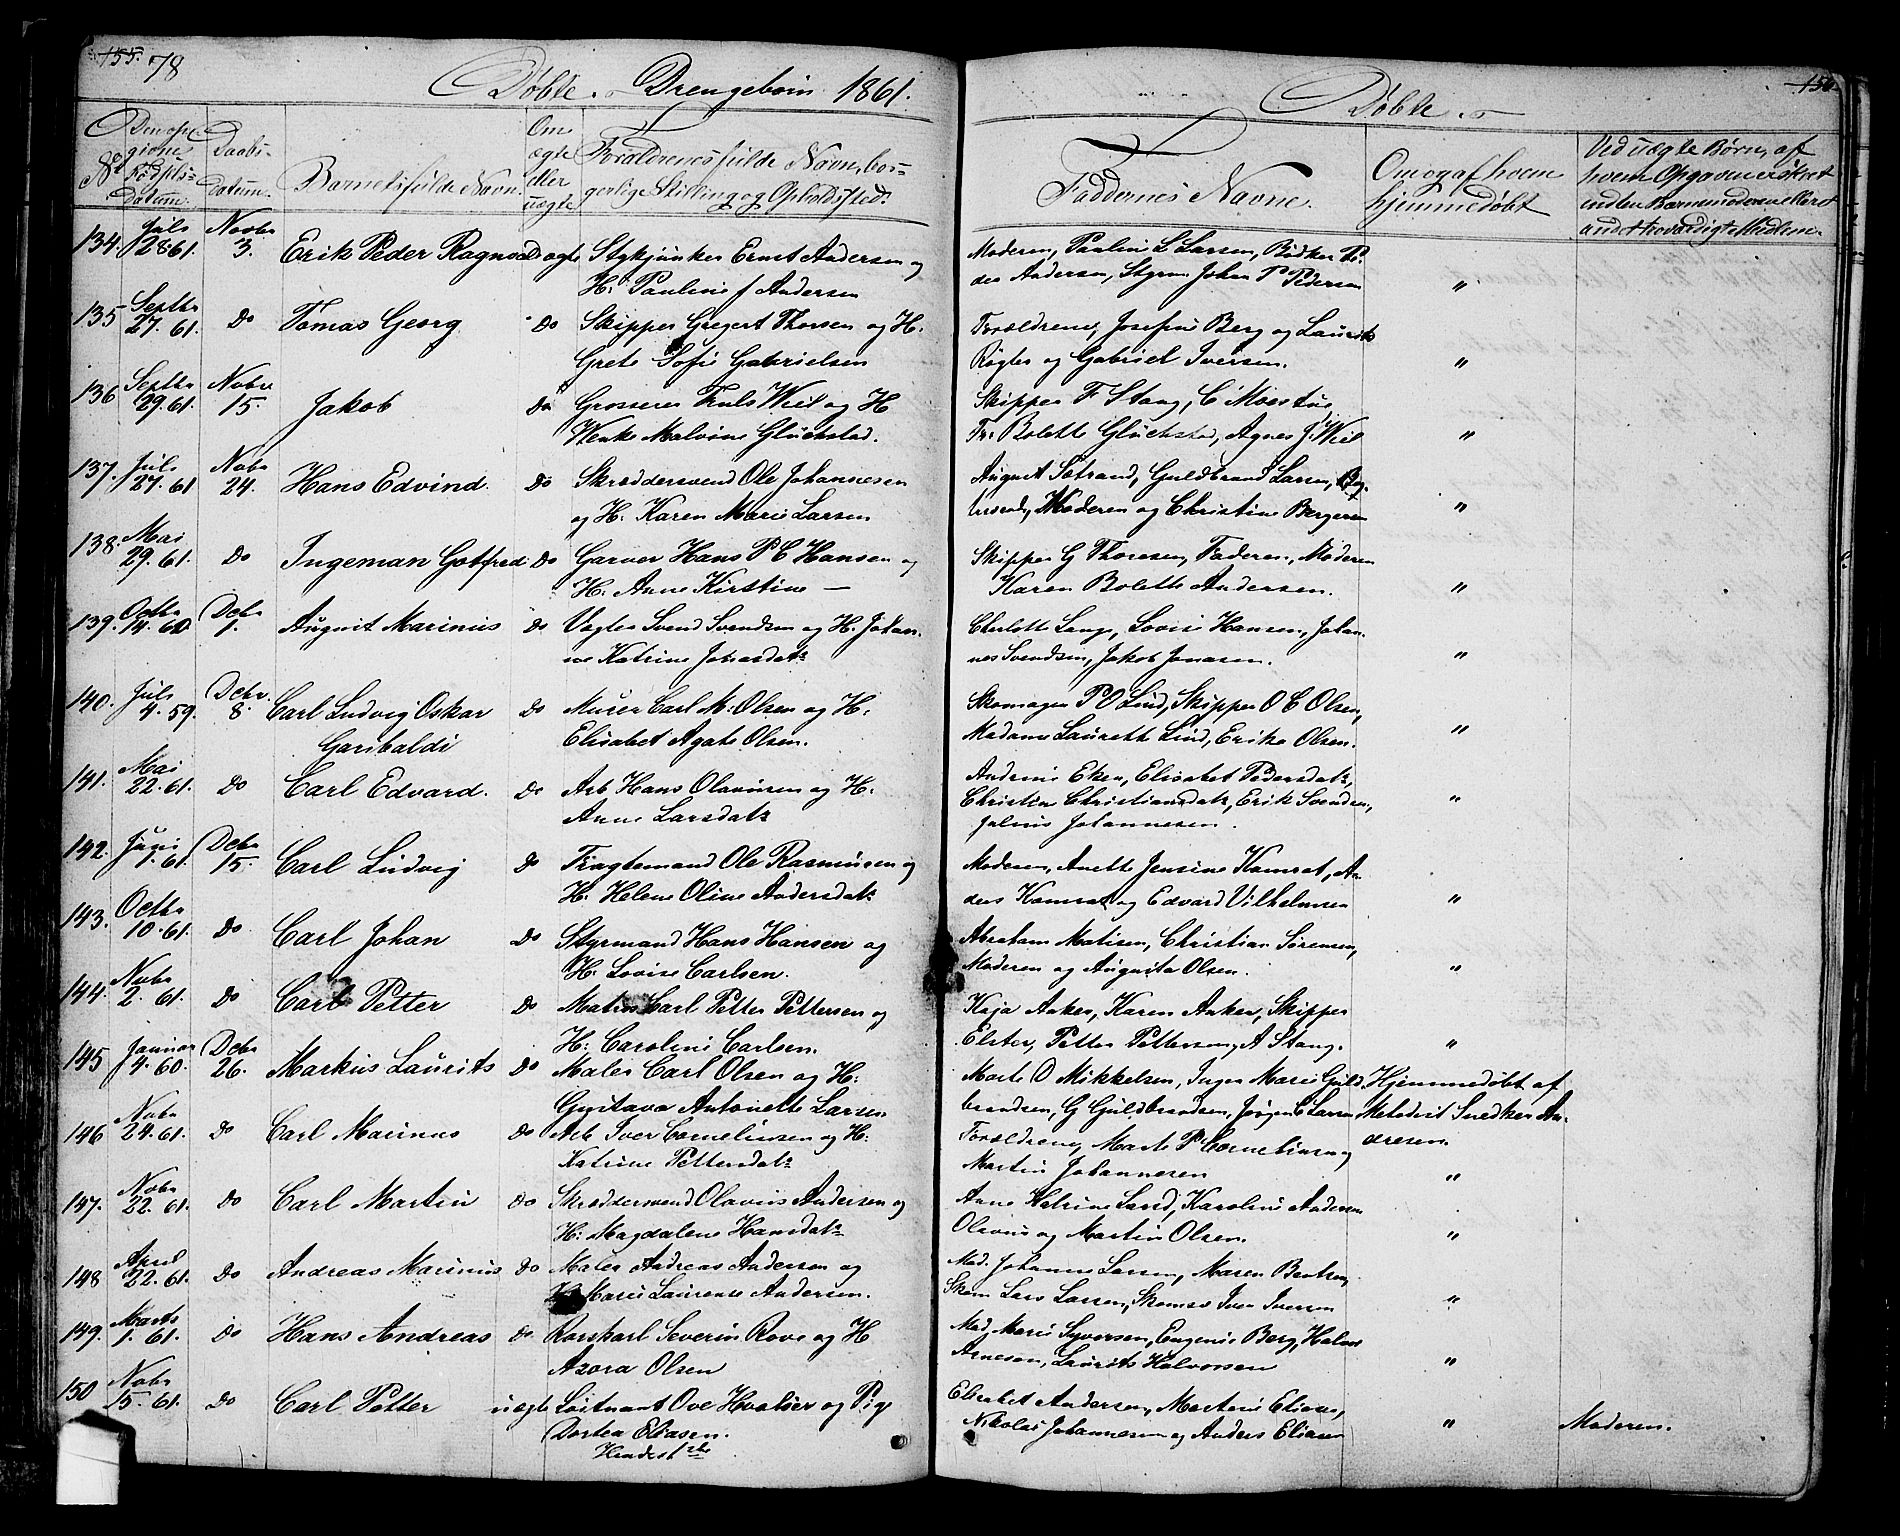 155. 78
Døbte. Drengebørn 1861.
Døbte.
156
No
Den opgivne Fødselsdatum.
Daabsdatum.
Barnets fulde Navn.
Om ægte eller uægte
Forældrenes fulde Navn, borgerlige Stilling og Opholdssted.
Faddernes Navne.
Om og af hvem hjemmedøbt
Ved uægte Børn, af
134. Juli 28 61. Novbr 3. Erik Peder Ragnvald ægte Stykjunker Ernst Andersen og
H: Pauline f Andersen
Moderen, Pauline L Larsen, Bødker Pe-
der Andersen, Styrm Johan P Pedersen "
135 Septbr 27. 61. Do Tomas Georg Do Skipper Gregert Thorsen og H.
Grete Sofie Gabrielsen
Forældrene, Josefine Berg og Laurits
Røgler og Gabriel Iversen. "
136 Septbr 29. 61. Novbr 15. Jakob Do Grosserer Truls Wiel og H
Wenke Malvine Glückstad.
Skipper F Stang, C Moestue
Fr: Bolette Glückstad, Agnes J. Wiel "
137. Juli 27. 61 Novbr 24. Hans Edvind. Do Skræddersvend Ole Johannesen
og H. Karen Marie Larsen
August Sætrand, Guldbrand Larsen,
Moderen og Christine Bergersen "
138. Mai 29. 61. Do Ingeman Gotfred Do Garver Hans P C Hansen og
H. Anne Kirstine —
Skipper G Thoresen, Faderen, Moderen
Karen Bolette Andersen. "
139. Octbr 14. 60 Debr 1. August Marinus Do Vægter Svend Svendsen og H. Johan-
ne Katrine Johansdatr
Charlotte Lange, Lovise Hansen, Johan-
nes Svendsen, Jakob Jonasen. "
140. Juli 4. 59. Debr. 8. Carl Ludvig Oskar Do Murer Carl M. Olsen og H:
Garibaldi Elisabet Agate Olsen.
Skomager P O Lind, Skipper O C Olsen,
Madame Laurette Lind, Erika Olsen. "
141. Mai 22. 61. Do Carl Edvard. Do Arb Hans Olavesen og H.
Anne Larsdatr
Andrine Eken, Elisabet Pedersdatr,
Christine Christiansdatr, Erik Svendsen,
Julius Johannesen. "
142. Juni 1. 61. Debr 15. Carl Ludvig Do Fragtemand Ole Rasmusen og
H. Helene Oline Andersdatr
Moderen, Anette Jensine Kamrat, An-
ders Kamrat og Edvard Vilhelmsen "
143. Octbr 10. 61. Do Carl Johan Do Styrmand Hans Hansen og
H. Lovise Carlsen.
Abraham Matisen, Christian Sørensen,
Moderen og Augusta Olsen. "
144. Novbr 2. 61. Do Carl Petter Do Matros Carl Petter Pettersen og
H. Caroline Carlsen.
Kaja Anker, Karen Anker, Skipper
Elster, Petter Pettersen, A Stang. "
145 Januar 4. 60. Debr 26. Markus Laurits Do Maler Carl Olsen og H:
Gustava Antonette Larsen
Marte O Mikkelsen, Inger Marie Guld-
brandsen, G Guldbrandsen, Jørgen C Larsen
Hjemmedøbt af
Metodist Snedker An-
dresen.
146 Novbr 24. 61. Do Carl Marinus Do Arb Iver Corneliusen og H:
Katrine Pettersdatr
Forældrene, Marte P. Corneliusen og
Martin Johannesen "
147. Novbr 22. 61. Do Carl Martin Do Skræddersvend Olavus Andersen og
H: Magdalene Hansdatr
Anne Katrine Lund, Karoline Andersen
Olavus og Martin Olsen. "
148 April 22. 61. Do Andreas Marinus Do Maler Andreas Andersen og
H. Marie Laurense Andersen.
Mad. Johanne Larsen, Maren Bentsen,
Skom Lars Larsen, Skomsv Iver Iversen "
149. Marts 1. 61. Do Hans Andreas Do Rorskarl Severin Rove og H
Azora Olsen
Mad. Marie Syversen, Eugenie Berg, Halvor
Arnesen, Laurits Halvorsen "
150 Novbr 15. 61. Do Carl Petter uægte Løitnant Ove Hvalsøe og Pige
Dortea Eliasen.
Elisabet Andersen, Martine Eliasen,
Nikolai Johannesen og Anders Eliasen " Moderen.